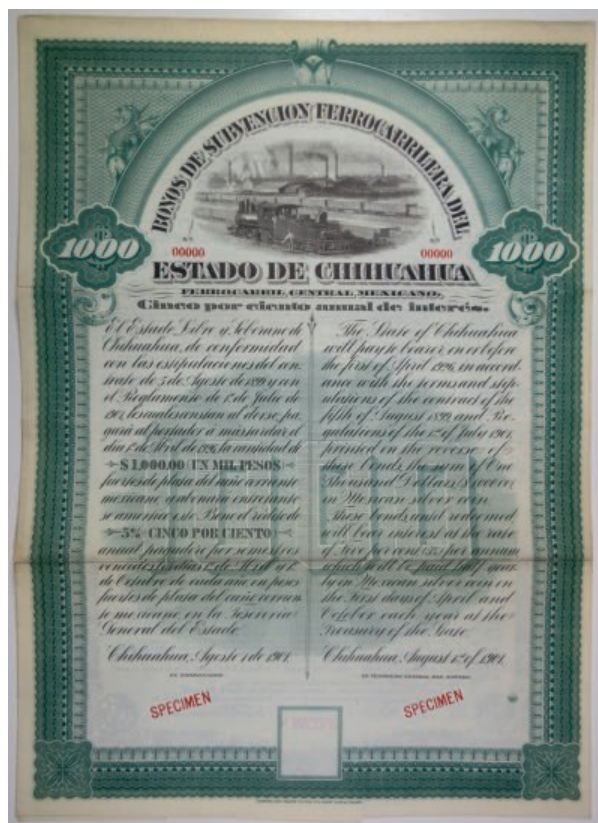 BONOS DE SUBVENCION FERROCARRILERA DEL
Nº Nº
00000 00000
1000 1000
ESTADO DE CHIHUAHUA
FERROCARRIL CENTRAL MEXICANO,
Cinco por ciento anual de interés.
El Estado Libre y Soberano de
Chihuahua, de conformidad
con las estipulaciones del con-
trato de 5 de Agosto de 1899 y con
el Reglamento de 1º de Julio de
1901, los cuales constan al dorso, pa-
gará al portador á más tardar el
día 1º de Abril de la cantidad de
$1,000.00 (UN MIL PESOS)
fuertes de plata del cuño corriente
mexicano, y abonará entretanto
se amortice este Bono el rédito de
5% CINCO POR CIENTO
anual, pagadero por semestres
vencidos los días 1º de Abril y 1º
de Octubre de cada año en pesos
fuertes de plata del cuño corrien-
te mexicano, en la Tesorería
General del Estado.
Chihuahua, Agosto 1 de 1901.
The State of Chihuahua
will pay to bearer, on or before
the first of April in accord-
ance with the terms and stip-
ulations of the contract of the
fifth of August 1899 and Re-
gulations of the 1st of July 1901,
printed on the reverse of
these bonds, the sum of One
Thousand Dollars,
in Mexican silver coin.
These bonds until redeemed
will bear interest at the rate
of Five per cent (5%) per annum
which will be paid half year-
ly in Mexican silver coin on
the first days of April and
October each year at the
Treasury of the State.
Chihuahua, August 1st of 1901.
EL GOBERNADOR EL TESORERO GENERAL DEL ESTADO
SPECIMEN SPECIMEN